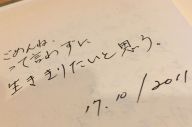 ごめんね
って言わずに
生ききりたいと思う。
17.10/2011